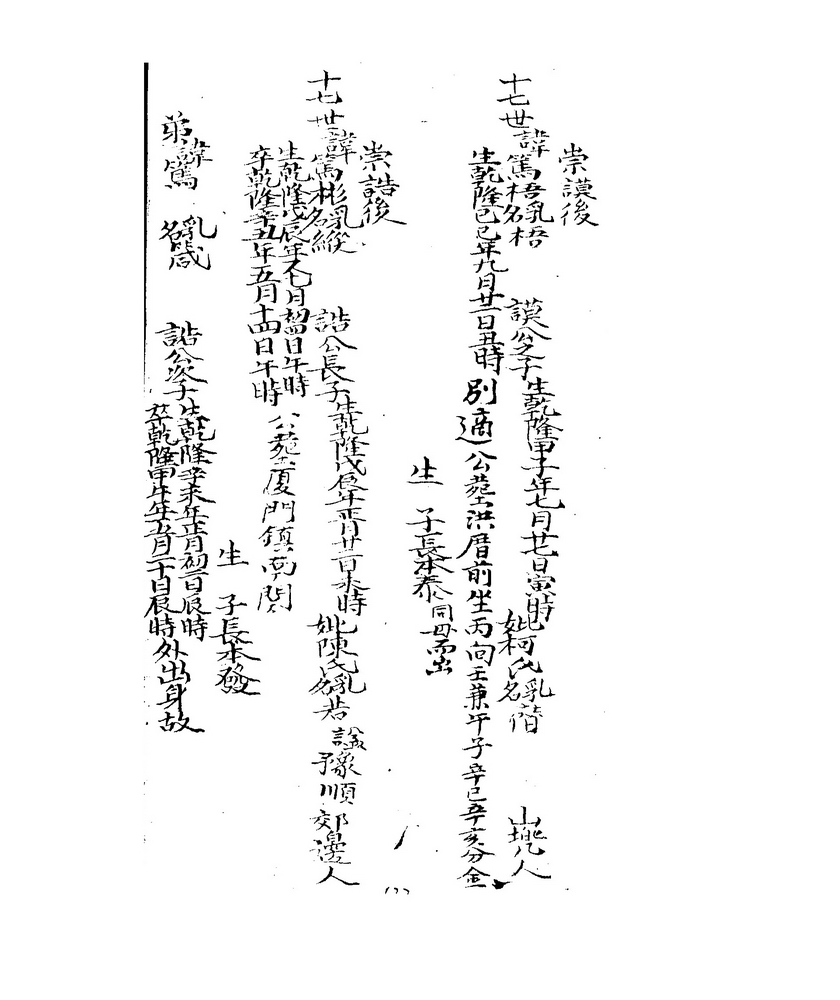 崇謨後
十七世諱篤梧乳名梧 謨公之子生乾隆甲子年七月廿七日寅時妣柯氏乳名偕 山兜人
生乾隆己巳年九月廿一日丑時別適公葬洪厝前坐丙向壬兼午子辛巳辛亥分金
生 子長本泰同母而出
崇誥後
十七世諱篤彬乳名縱 誥公長子生乾隆戊辰年正月廿一日未時妣陳氏乳名若 謚豫順郊邊人
生乾隆戊辰年七月初四日午時
卒乾隆辛丑年五月十四日午時公葬廈門鎮南関
生 子長本發
弟諱篤 乳名葴 誥公次子生乾隆辛未年正月初一日辰時
卒乾隆甲午年五月二十日辰時外出身故